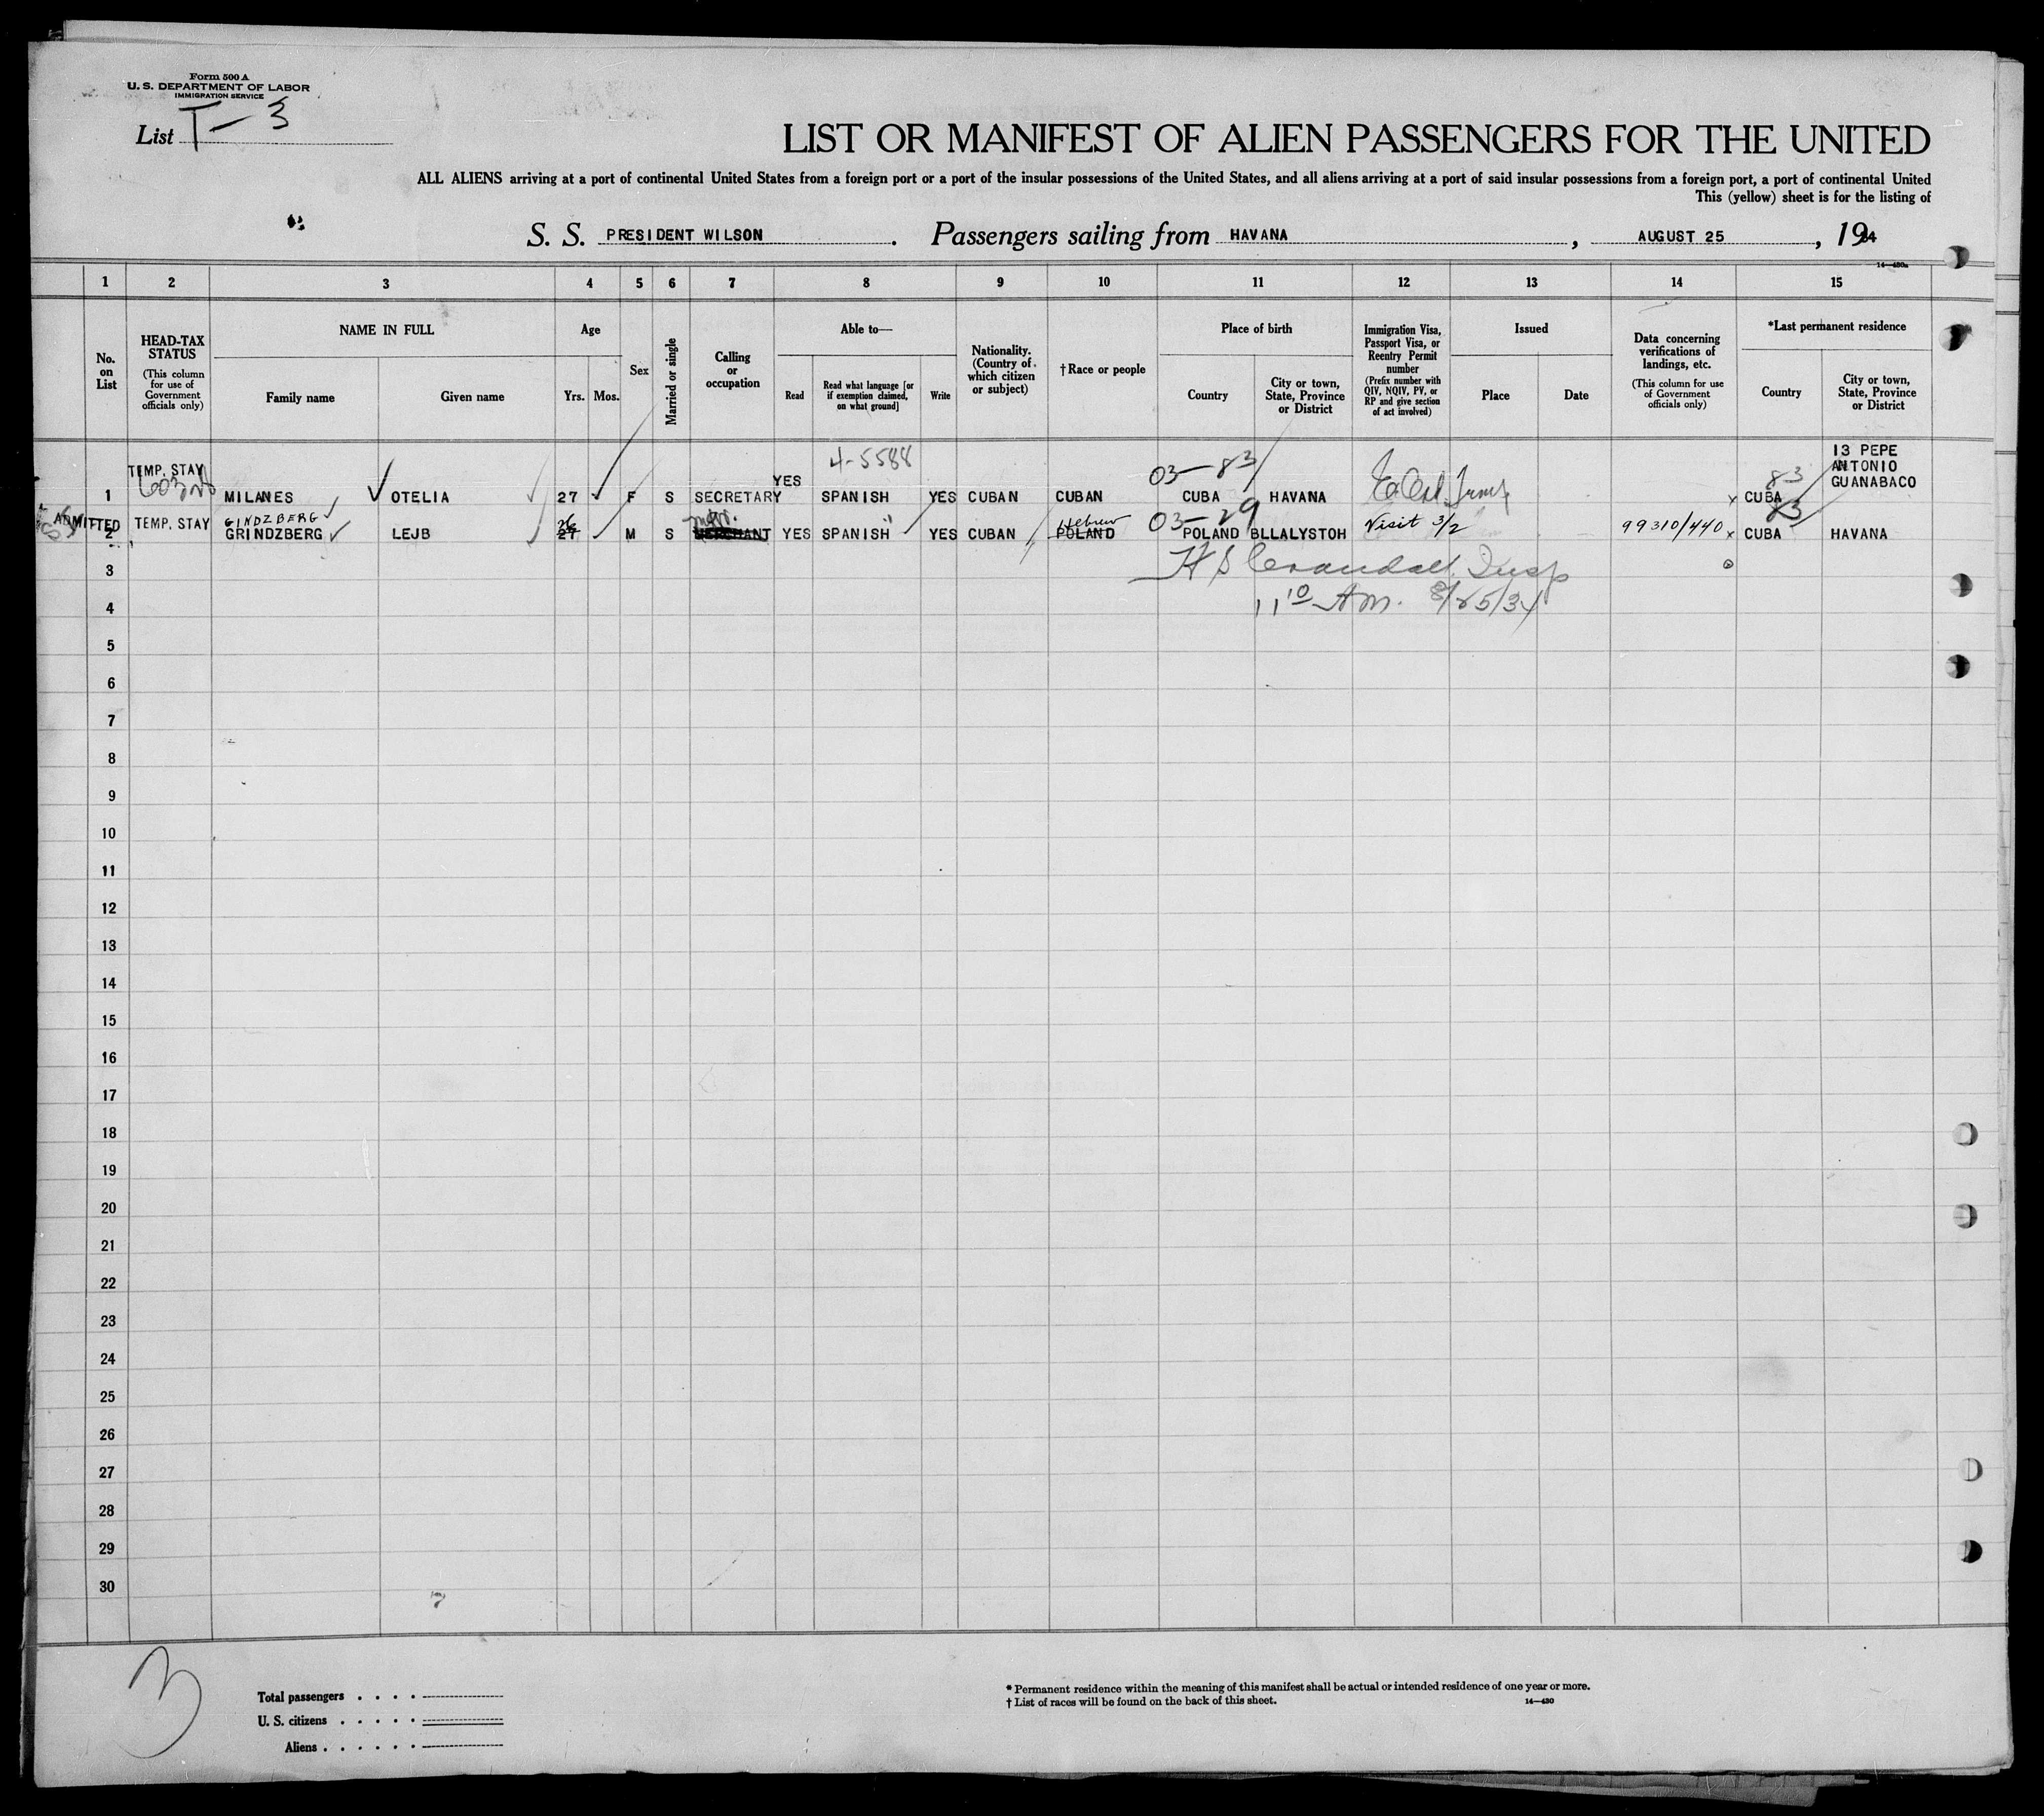 Form 500 A
U. S. DEPARTMENT OF LABOR
IMMIGRATION SERVICE
List T-3
LIST OR MANIFEST OF ALIEN PASSENGERS FOR THE UNITED
ALL ALIENS arriving at a port of continental United States from a foreign port or a port of the insular possessions of the United States, and all aliens arriving at a port of said insular possessions from a foreign port, a port of continental United
This (yellow) sheet is for the listing of
S. S. PRESIDENT WILSON. Passengers sailing from HAVANA, AUGUST 25, 1934
14—430a
1 2 3 4 5 6 7 8 9 10 11 12 13 14 15
No. on List
HEAD-TAX STATUS
(This column for use of Government officials only)
NAME IN FULL
Family name
Given name
Age
Yrs. Mos.
Sex
Married or single
Calling or occupation
Able to—
Read
Read what language [or if exemption claimed, on what ground]
Write
Nationality. (Country of which citizen or subject)
†Race or people
Place of birth
Country
City or town, State, Province or District
Immigration Visa, Passport Visa, or Reentry Permit number
(Prefix number with QIV, NQIV, PV, or RP and give section of act involved)
Issued
Place
Date
Data concerning verifications of landings, etc.
(This column for use of Government officials only)
*Last permanent residence
Country
City or town, State, Province or District
4-5588
03-83
83
1 TEMP. STAY MILANES OTELIA 27 F S SECRETARY YES SPANISH YES CUBAN CUBAN CUBA HAVANA x CUBA 13 PEPE ANTONIO GUANABACO
GINDZBERG 26 Hebrew 03-29 83
ADMITTED 2 TEMP. STAY GRINDZBERG LEJB 27 M S MERCHANT YES SPANISH YES CUBAN POLAND POLAND BLLALYSTOH Visit 3/2 99310/440 x CUBA HAVANA
3 H S Crandall Insp
4 11 10 AM. 8/25/34
5
6
7
8
9
10
11
12
13
14
15
16
17
18
19
20
21
22
23
24
25
26
27
28
29
30
3
Total passengers . . . .
U. S. citizens . . . . .
Aliens . . . . . .
* Permanent residence within the meaning of this manifest shall be actual or intended residence of one year or more.
† List of races will be found on the back of this sheet.
14—430